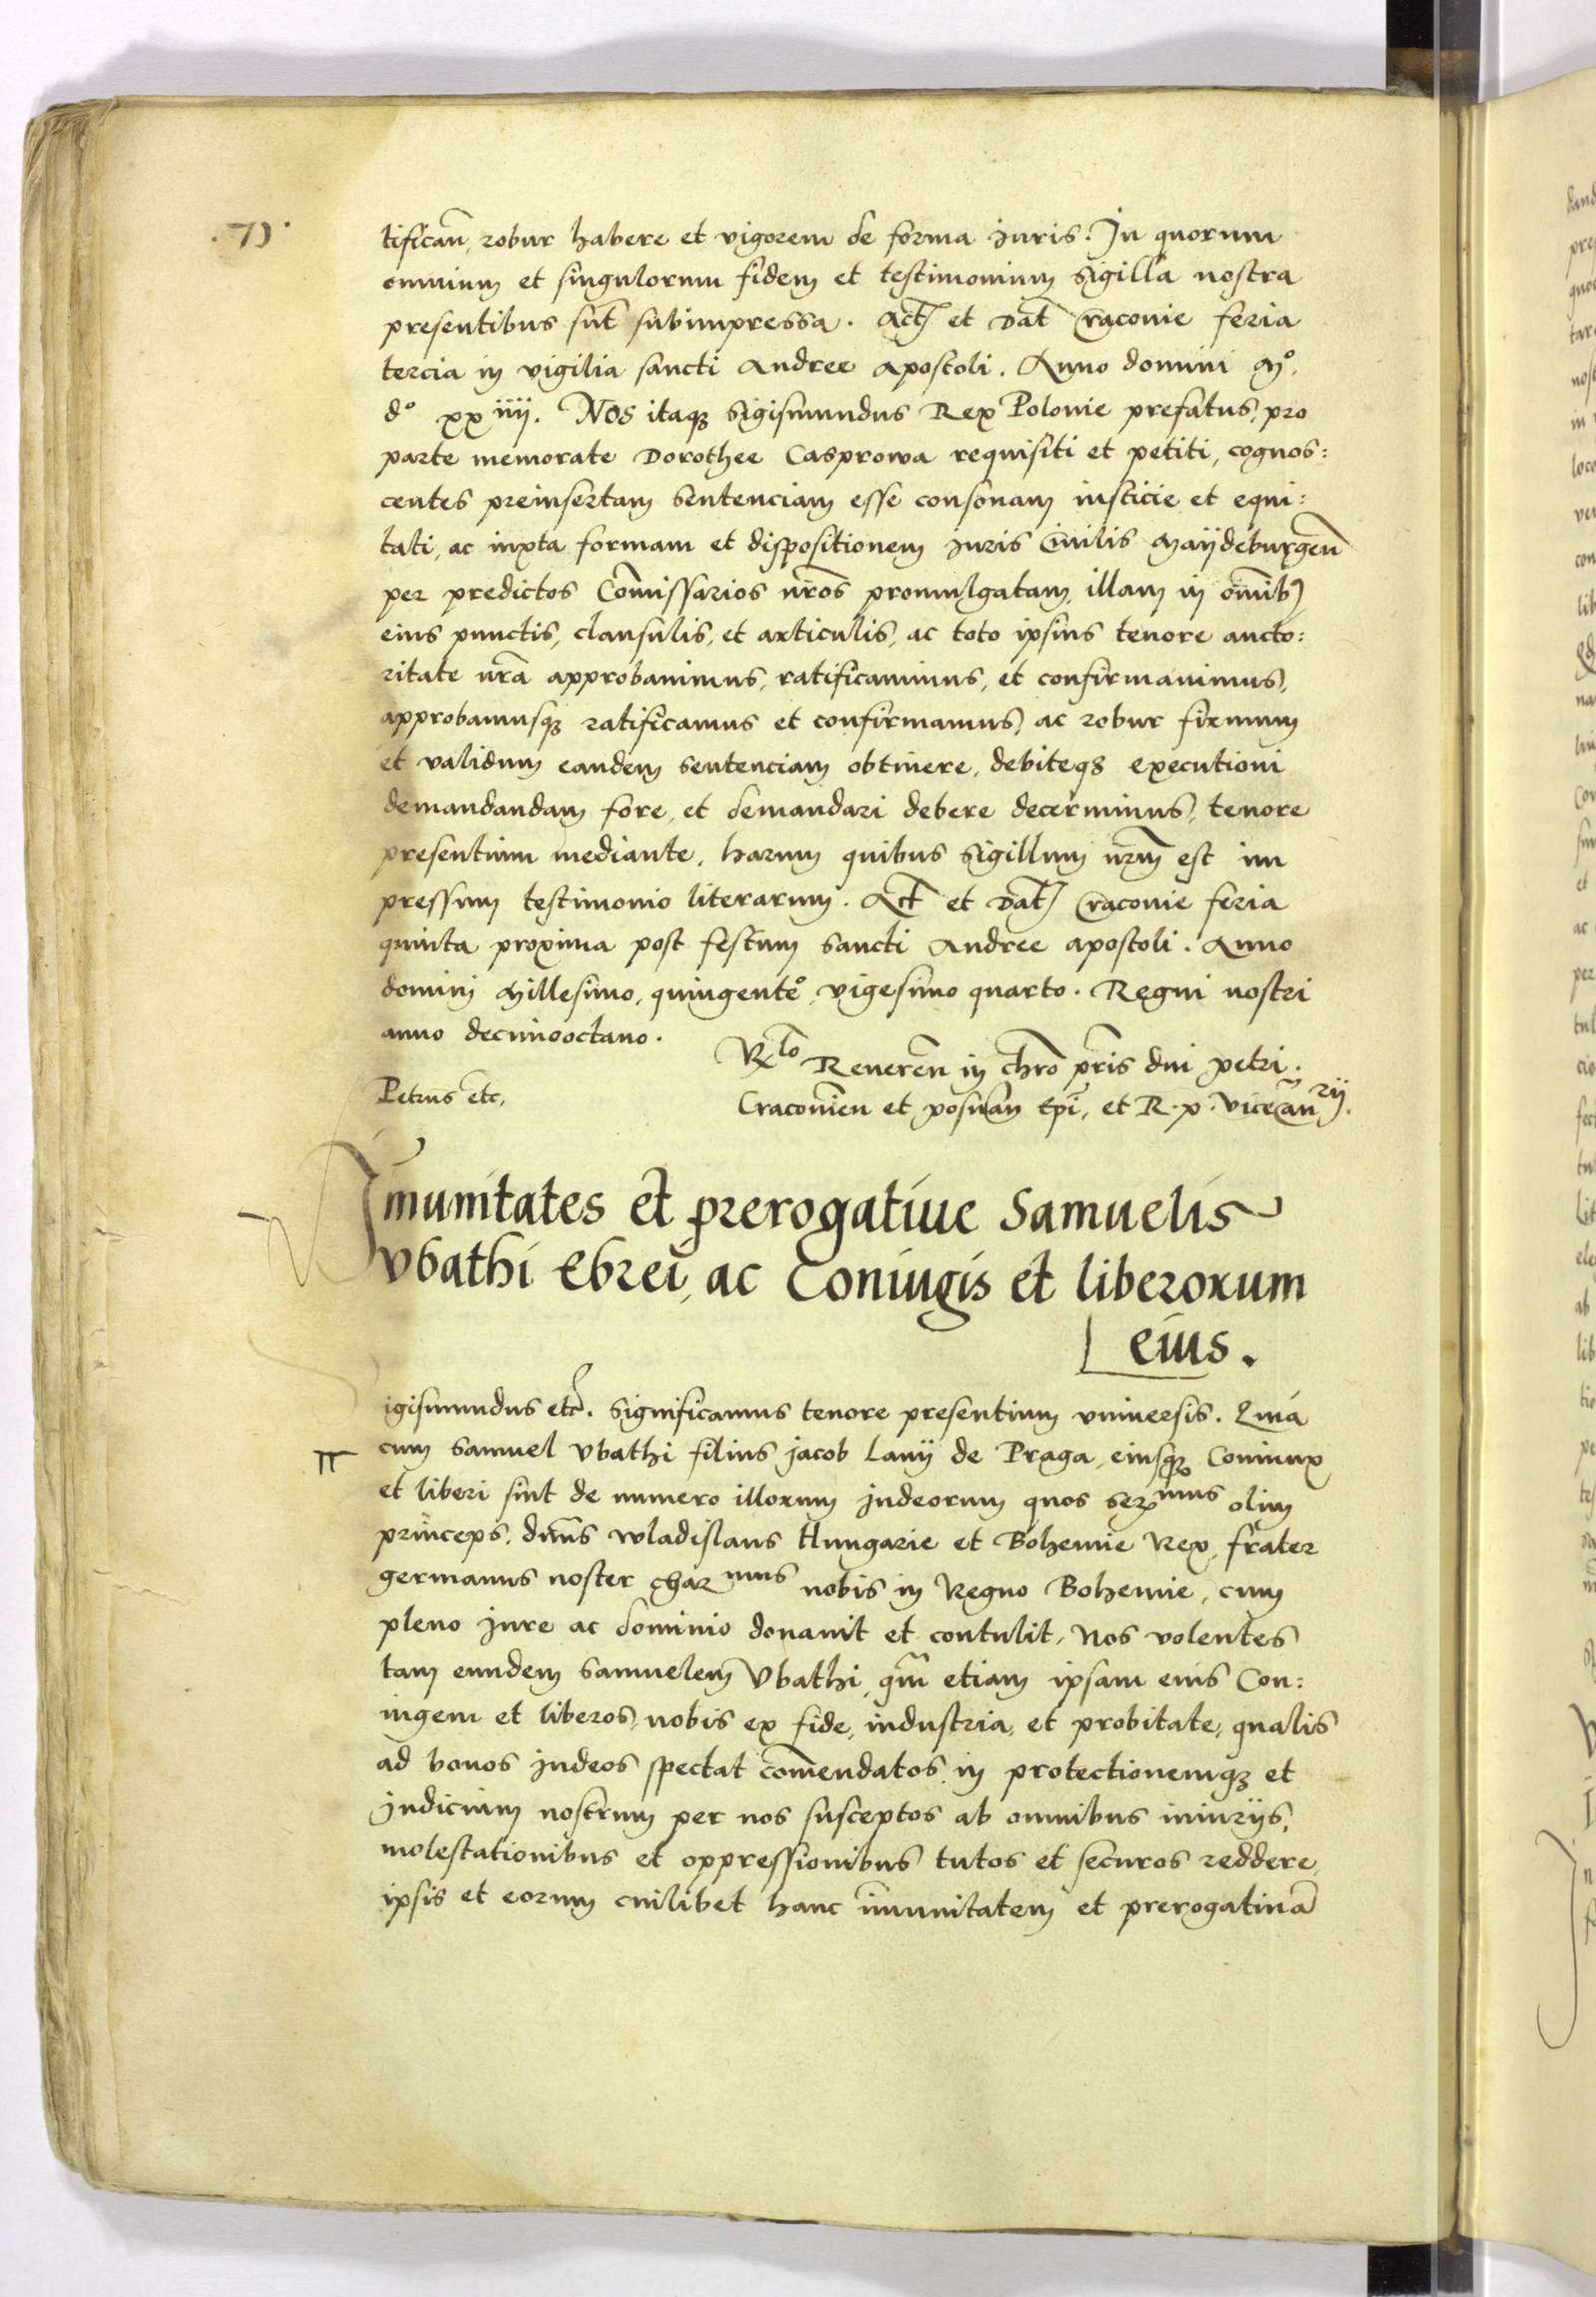 tifican̄, robur habere et vigorem de forma Juris. In quorum
omnium et singulorum fidem et testimonium sigilla nostra
presentibus sūt subimpressa. Act̄ et Dat̄ Cracovie feria
tercia in vigilia sancti Andree Apostoli. Anno domini Mº.
dº xxiiij. Nos itaqꝫ Sigismundus Rex Polonie prefatus, pro
parte memorate Dorothee Casprowa requisiti et petiti, cognos:
centes preinsertam sentenciam esse consonam iusticie et equi:
tati, ac iuxta formam et dispositionem Juris Civilis Maijdeburgen̄
per predictos Com̄issarios nr̄os promulgatam, illam in om̄ib9
eius punctis, clausulis, et articulis, ac toto ipsius tenore aucto:
ritate nr̄a approbavimus, ratificavimus, et confirmavimus,
approbamusqꝫ ratificamus et confirmamus, ac robur firmum
et validum eandem sentenciam obtinere, debiteqꝫ executioni
demandandam fore, et demandari debere decernimus, tenore
presentium mediante, harum quibus sigillum nr̄m est im
pressum testimonio literarum. Act̄ et Dat̄ Cracovie feria
quinta proxima post festum sancti Andree apostoli. Anno
domini Millesimo, quingentº, vigesimo quarto. Regni nostri
anno decimooctavo.
Rlo Reveren̄ in chr̄o pr̄is dn̄i petri.
Petrus etc,
Cracovien̄ et posnan̄ Ep̄i, et R. p. Vicecan̄rij.
Imunitates et prerogative Samuelis
Vbathi Ebrei, ac Coniugis et liberorum
eius.
igismundus etc̄. Significamus tenore presentium universis. Quia
cum Samuel Vbathi filius Jacob Lanij de Praga, eiusqꝫ Coniunx
et liberi sint de numero illorum Judeorum quos sermus olim
princeps, dn̄us Wladislaus Hungarie et Bohemie Rex, frater
germanus noster charmus nobis in Regno Bohemie, cum
pleno Jure ac dominio donavit et contulit, Nos volentes
tam eundem Samuelem Vbathi, qm̄ etiam ipsam eius Con:
iugem et liberos, nobis ex fide, industria, et probitate, qualis
ad bonos Judeos spectat com̄endatos in protectionemqꝫ et
Judicium nostrum per nos susceptos ab omnibus iniurijs,
molestationibus et oppressionibus tutos et securos reddere,
ipsis et eorum cuilibet hanc im̄unitatem et prerogativā